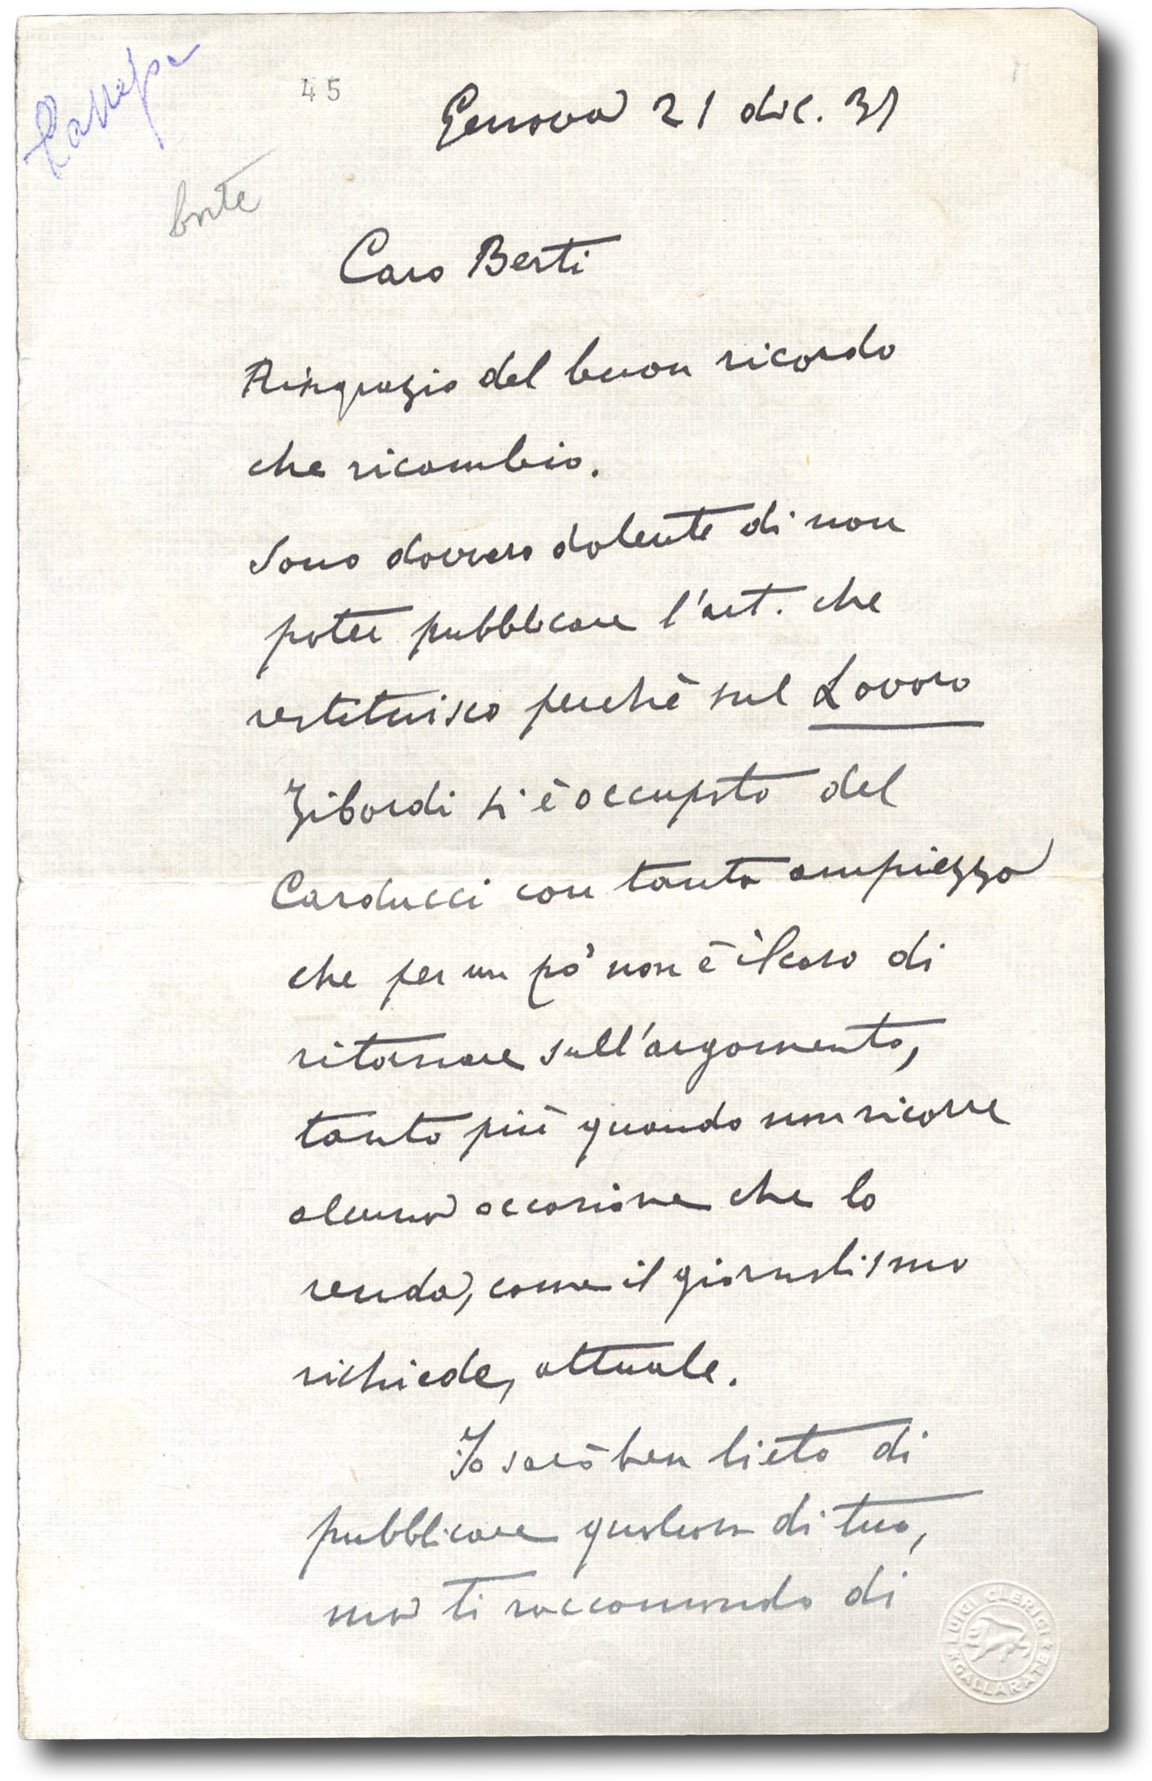 45
Genova 21 dic. 31
Caro Berti
Ringrazio del buon ricordo
che ricambio.
Sono davvero dolente di non
poter pubblicare l'art. che
restituisco perchè sul Lavoro
Zibordi si è occupato del
Carducci con tanta ampiezza
che per un pò non è il caso di
ritornare sull'argomento,
tanto più quando non ricorre
alcuna occasione che lo
renda, come il giornalismo
richiede, attuale.
Io sarò ben lieto di
pubblicare qualcosa di tuo,
ma ti raccomando di
LUIGI CLERICI
GALLARATE